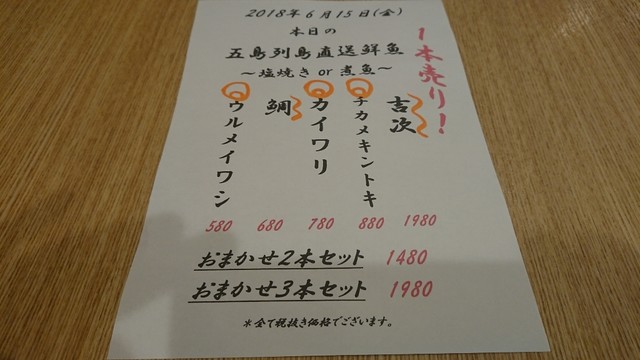 2018年6月15日(金)
本日の
五島列島直送鮮魚
～塩焼き or 煮魚～
1本売り!
吉次
チカメキントキ
カイワリ
鯛
ウルメイワシ
580 680 780 880 1980
おまかせ2本セット 1480
おまかせ3本セット 1980
*全て税抜き価格でございます。